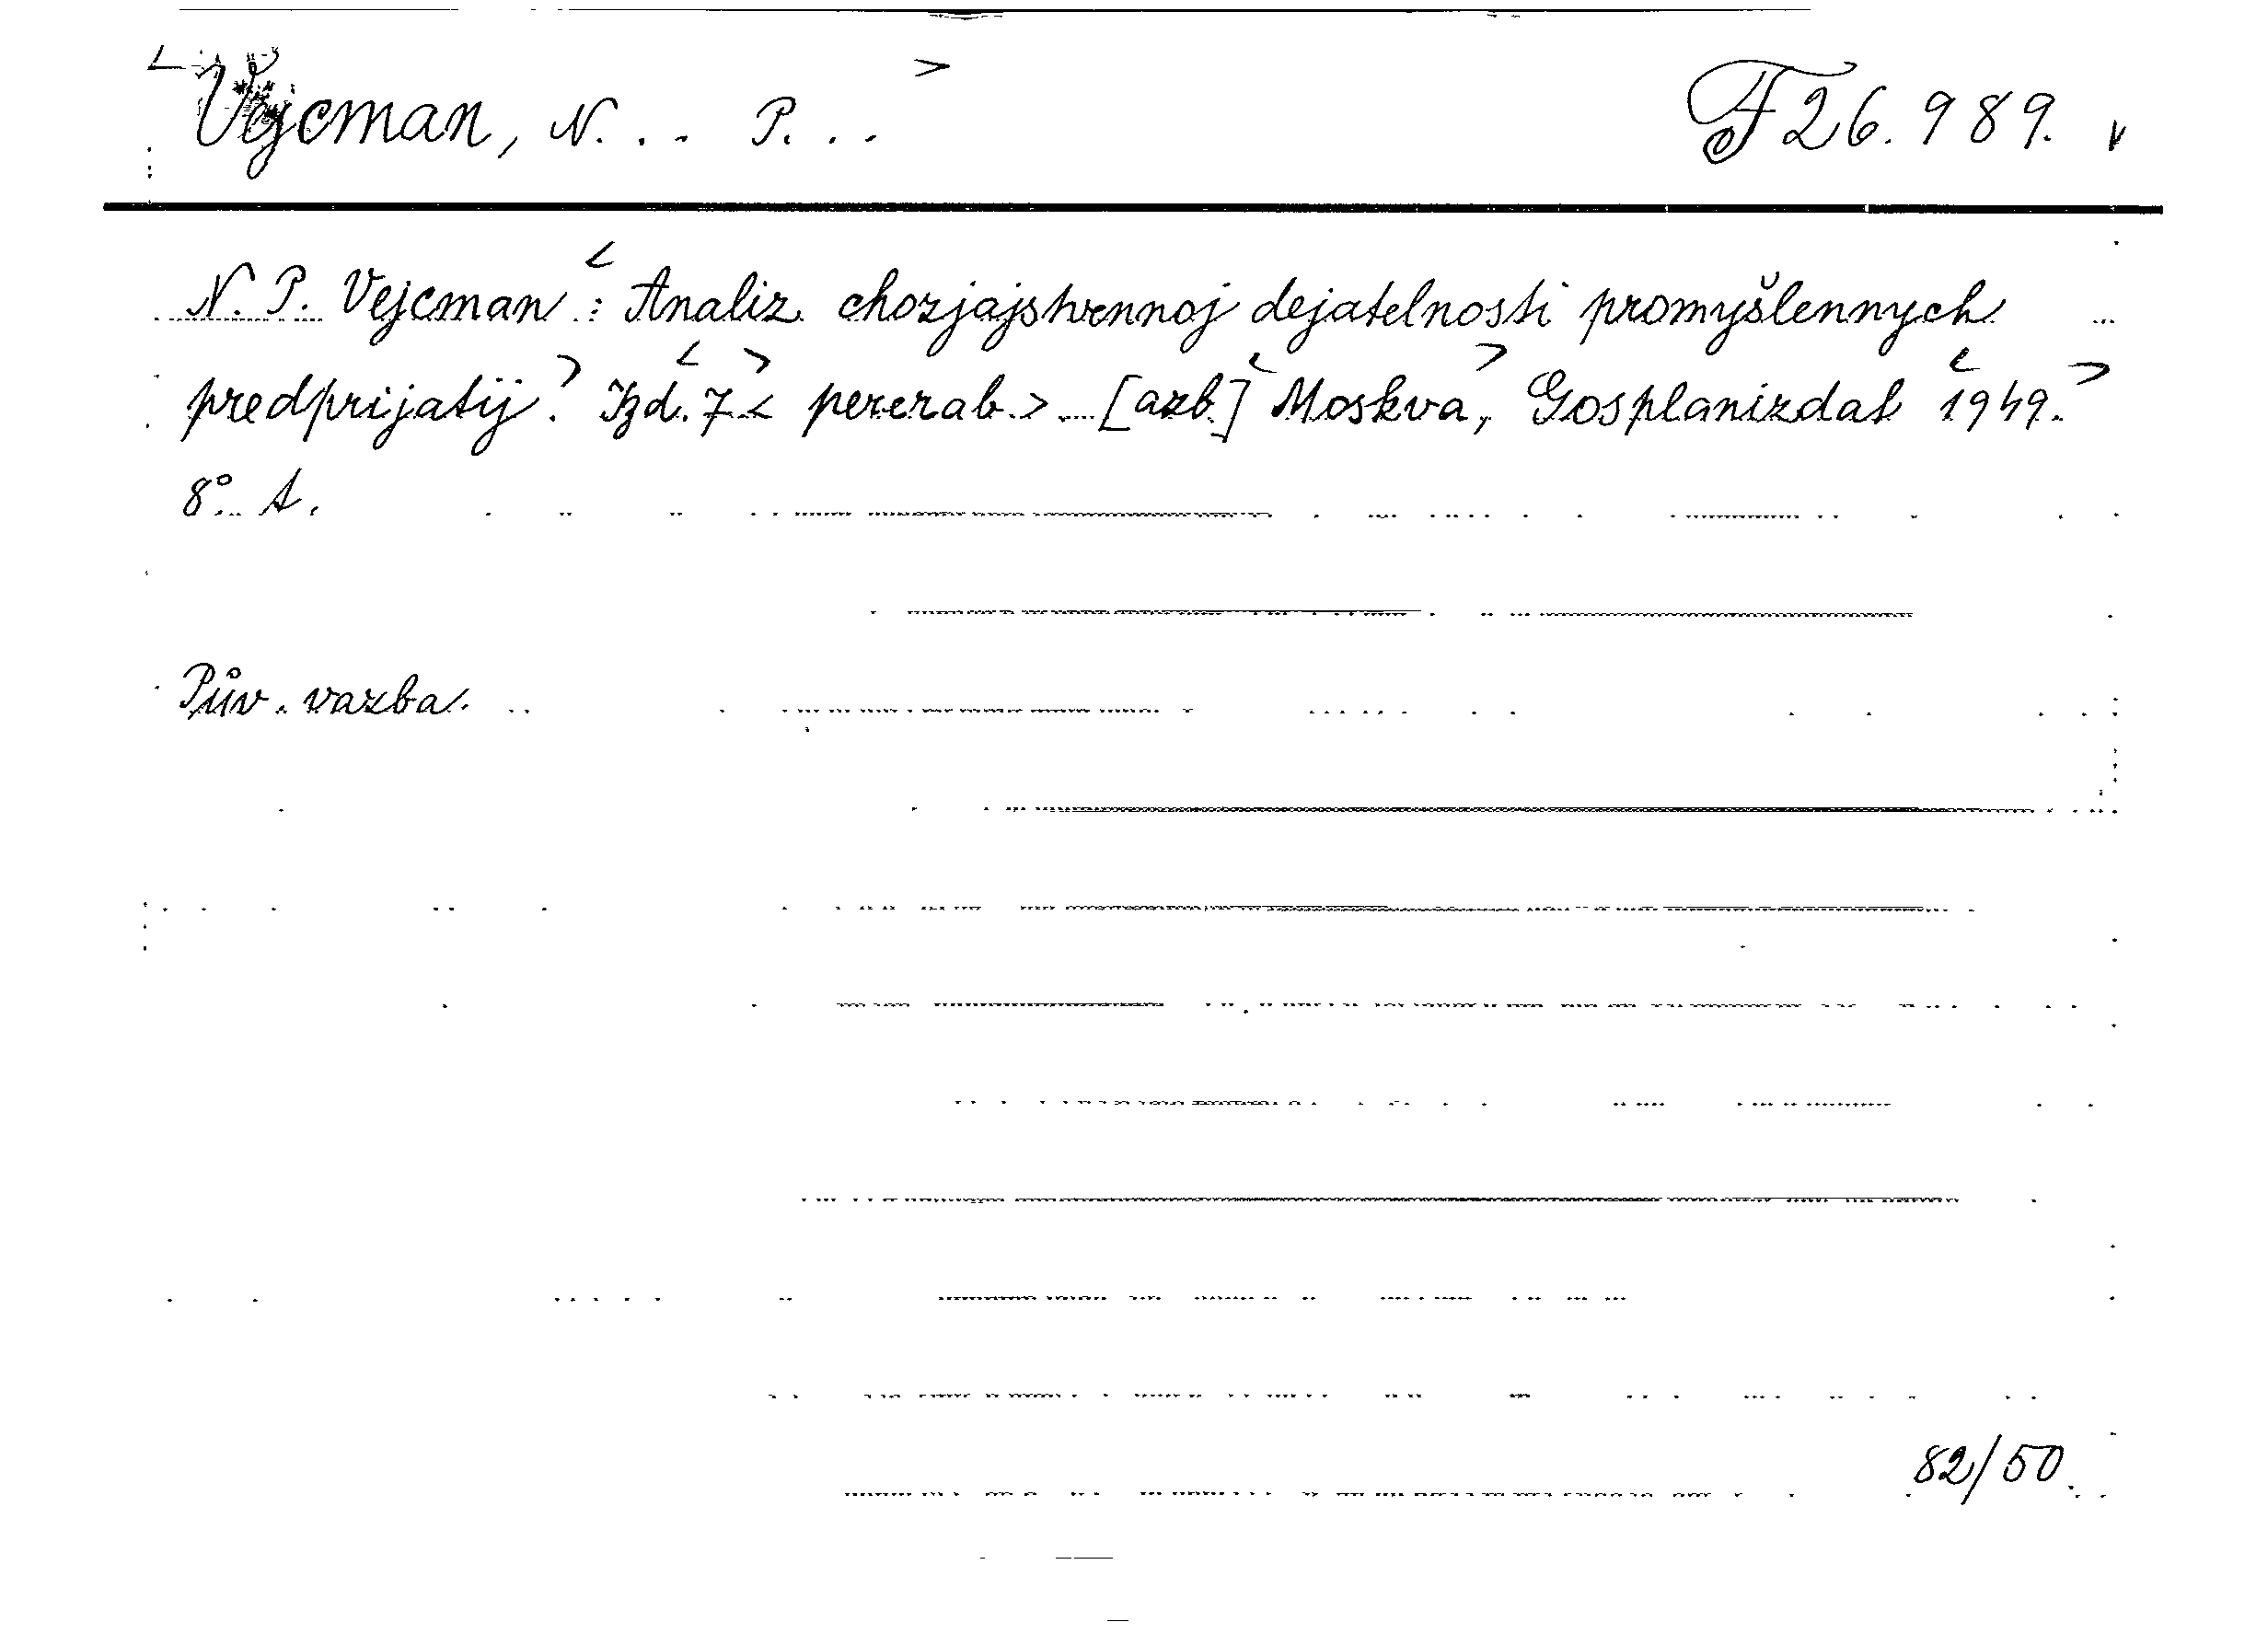 <Vejcman, N... P...> F 26.989. v
N. P. Vejcman : <Analiz chozjajstvennoj dejatelnosti promyšlennych
predprijatij.> Izd. <7> <pererab.> [azb.] <Moskva>, Gosplanizdat <1949.>
8° A.
Pův. vazba.
82/50.